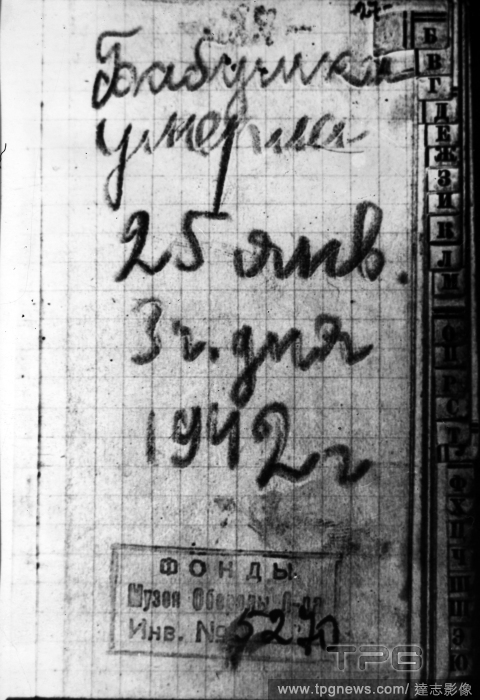 Бабушка
умерла
25 янв.
3 ч. дня
1942 г
ФОНДЫ
Музея Обороны
Инв. №
Б
В
Г
Д
Е Ж
З
И
К
Л
М
TPG
www.tpgnews.com/ 達志影像